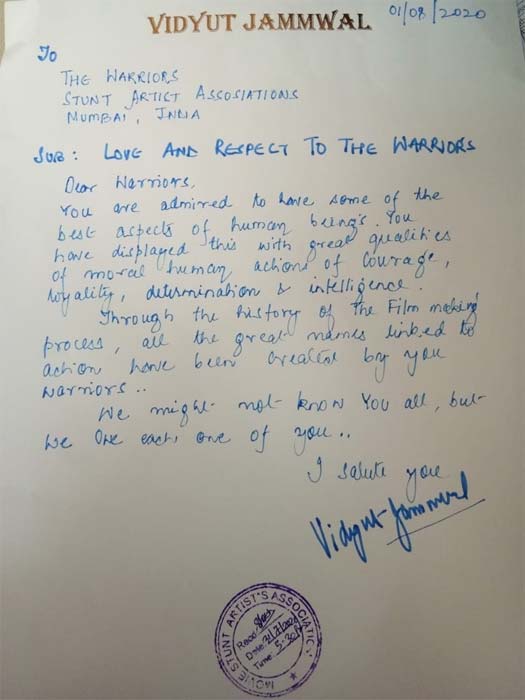 VIDYUT JAMMWAL
01/08/2020
To
THE WARRIORS
STUNT ARTIST ASSOSIATIONS
MUMBAI, INDIA
SUB: LOVE AND RESPECT TO THE WARRIORS
Dear Warriors,
You are admired to have some of the
best aspects of human being's. You
have displayed this with great qualities
of moral human actions of Courage,
loyality, determination & intelligence.
Through the history of the Film making
process, all the great names linked to
action have been created by you
warriors..
We might not know You all, but
we owe each one of you..
I salute you
Vidyut Jammwal
MOVIE STUNT ARTIST'S ASSOCIATION
Recd:
Date:
Time: 5-30